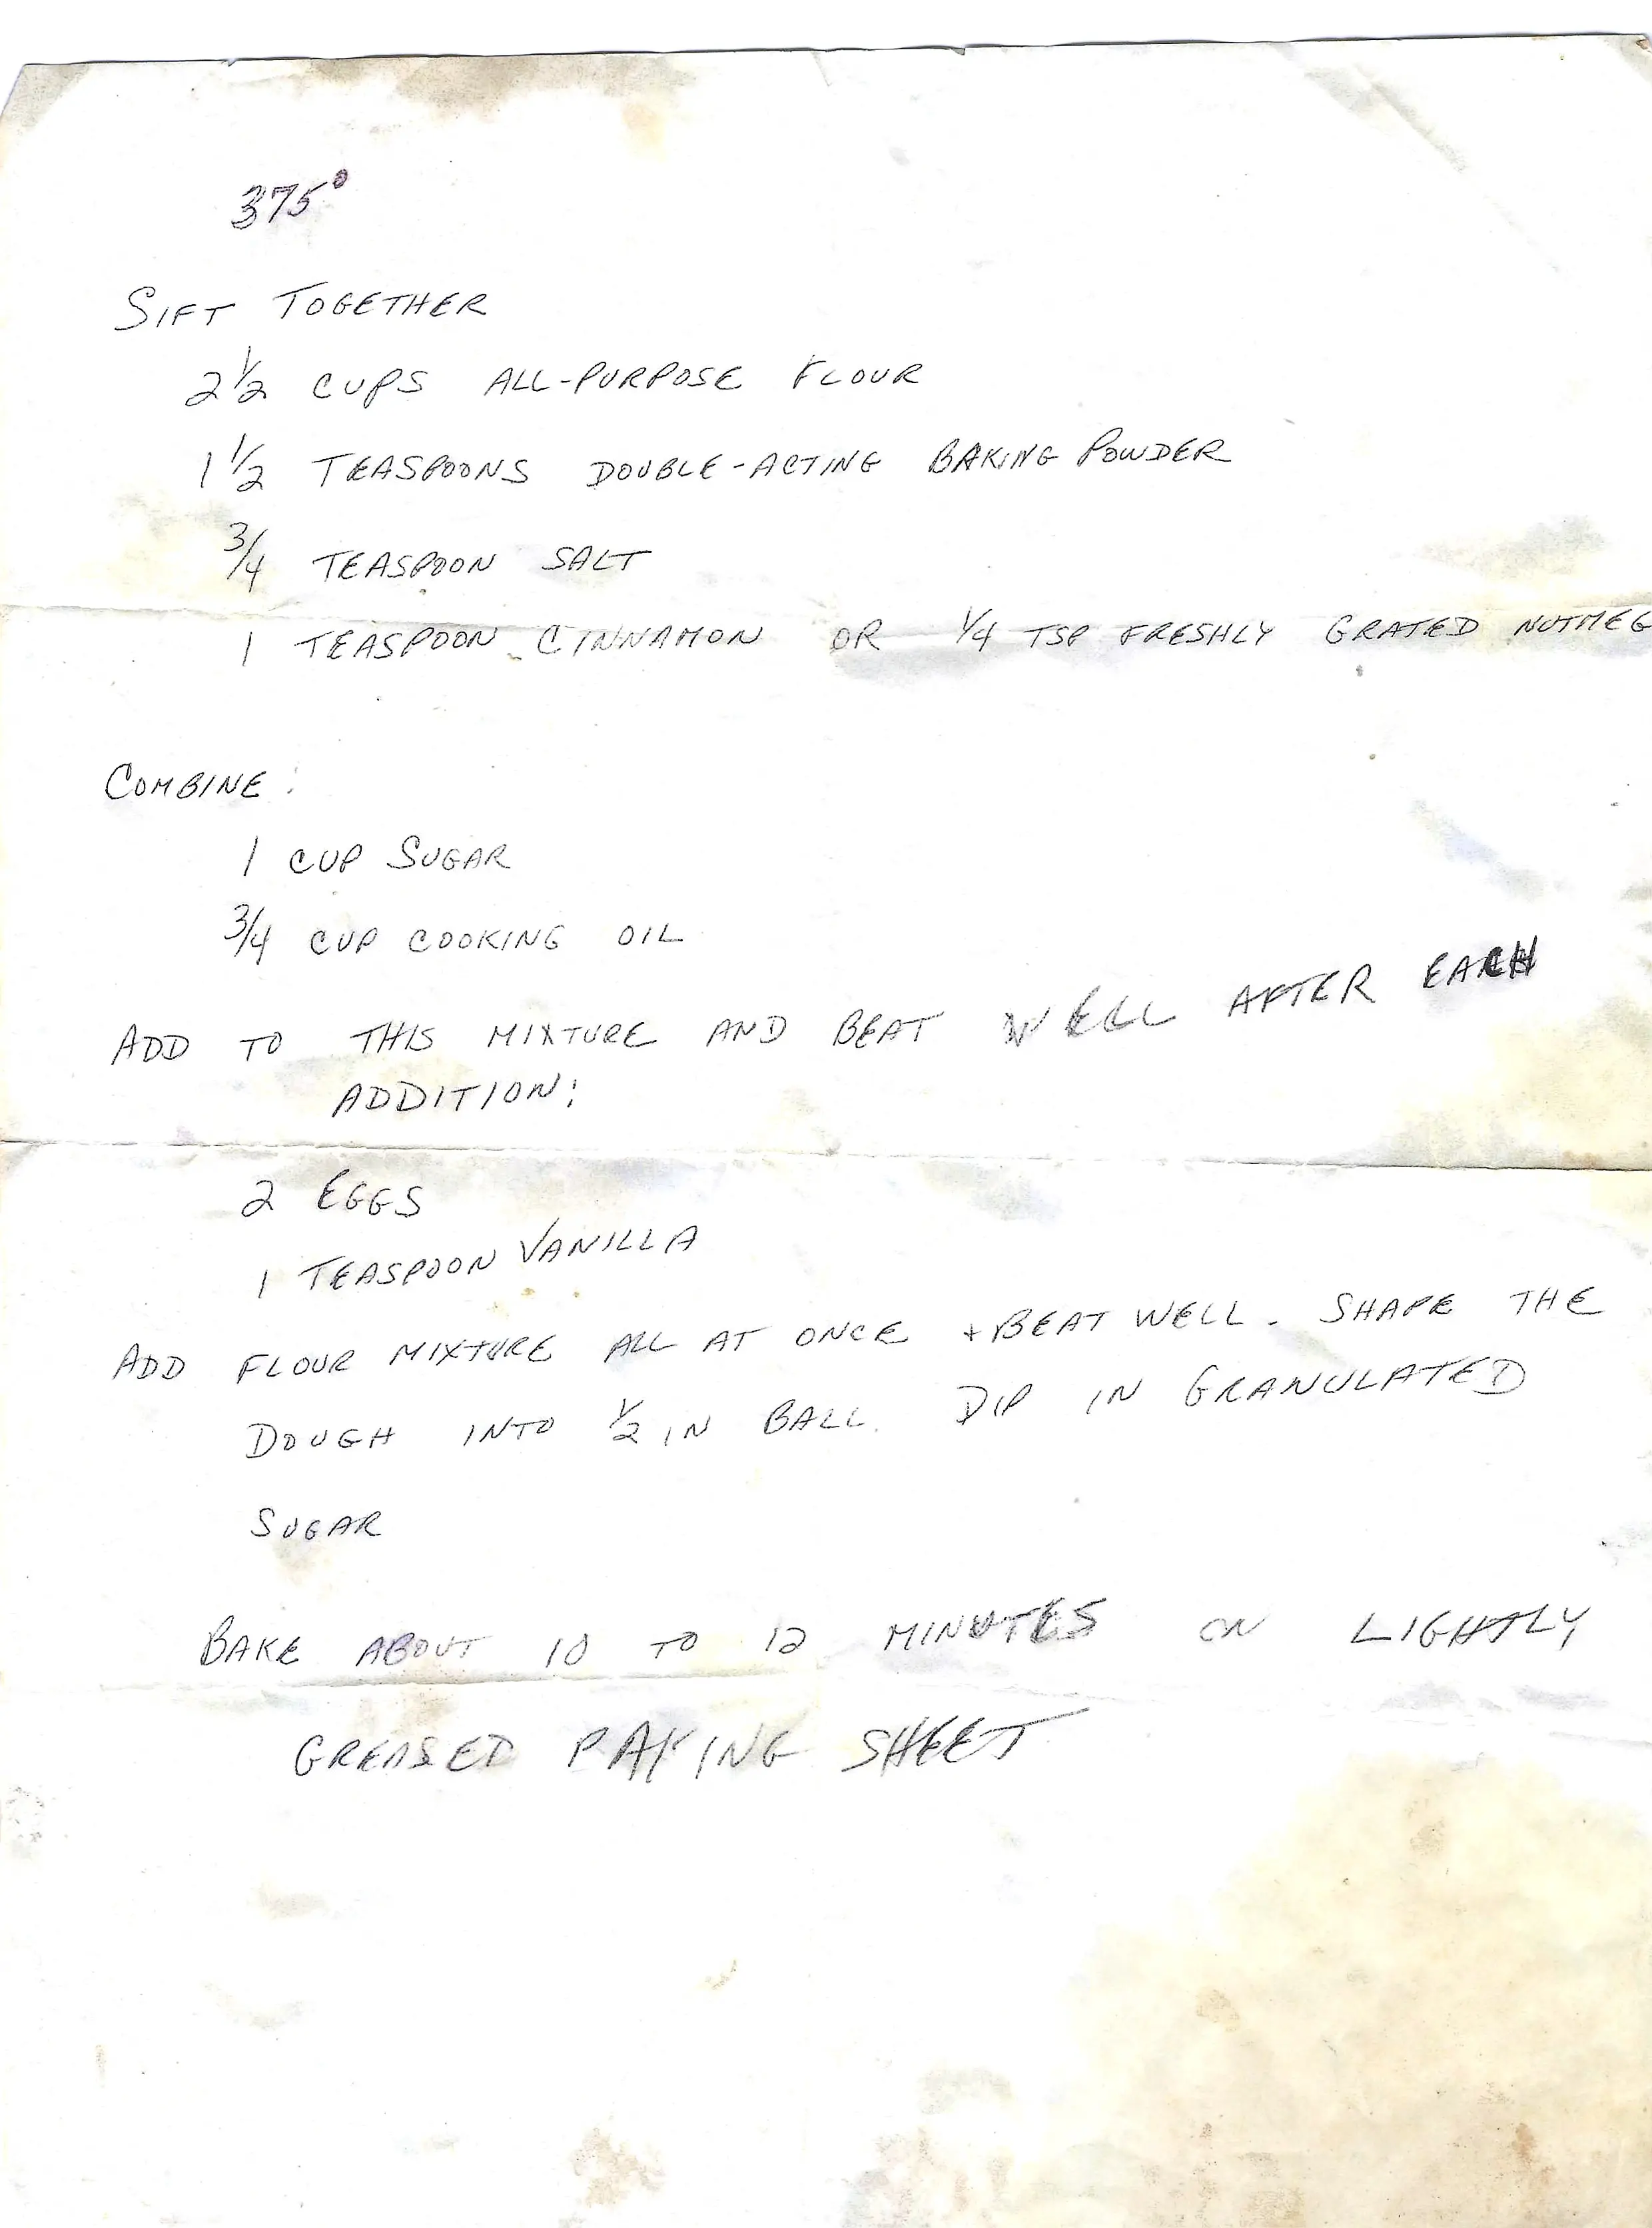 375°
SIFT TOGETHER
2 1/2 CUPS ALL-PURPOSE FLOUR
1 1/2 TEASPOONS DOUBLE-ACTING BAKING POWDER
3/4 TEASPOON SALT
1 TEASPOON CINNAMON OR 1/4 TSP FRESHLY GRATED NUTMEG
COMBINE:
1 CUP SUGAR
3/4 CUP COOKING OIL
ADD TO THIS MIXTURE AND BEAT WELL AFTER EACH
ADDITION:
2 EGGS
1 TEASPOON VANILLA
ADD FLOUR MIXTURE ALL AT ONCE + BEAT WELL. SHAPE THE
DOUGH INTO 1/2 IN BALL. DIP IN GRANULATED
SUGAR
BAKE ABOUT 10 TO 12 MINUTES ON LIGHTLY
GREASED BAKING SHEET